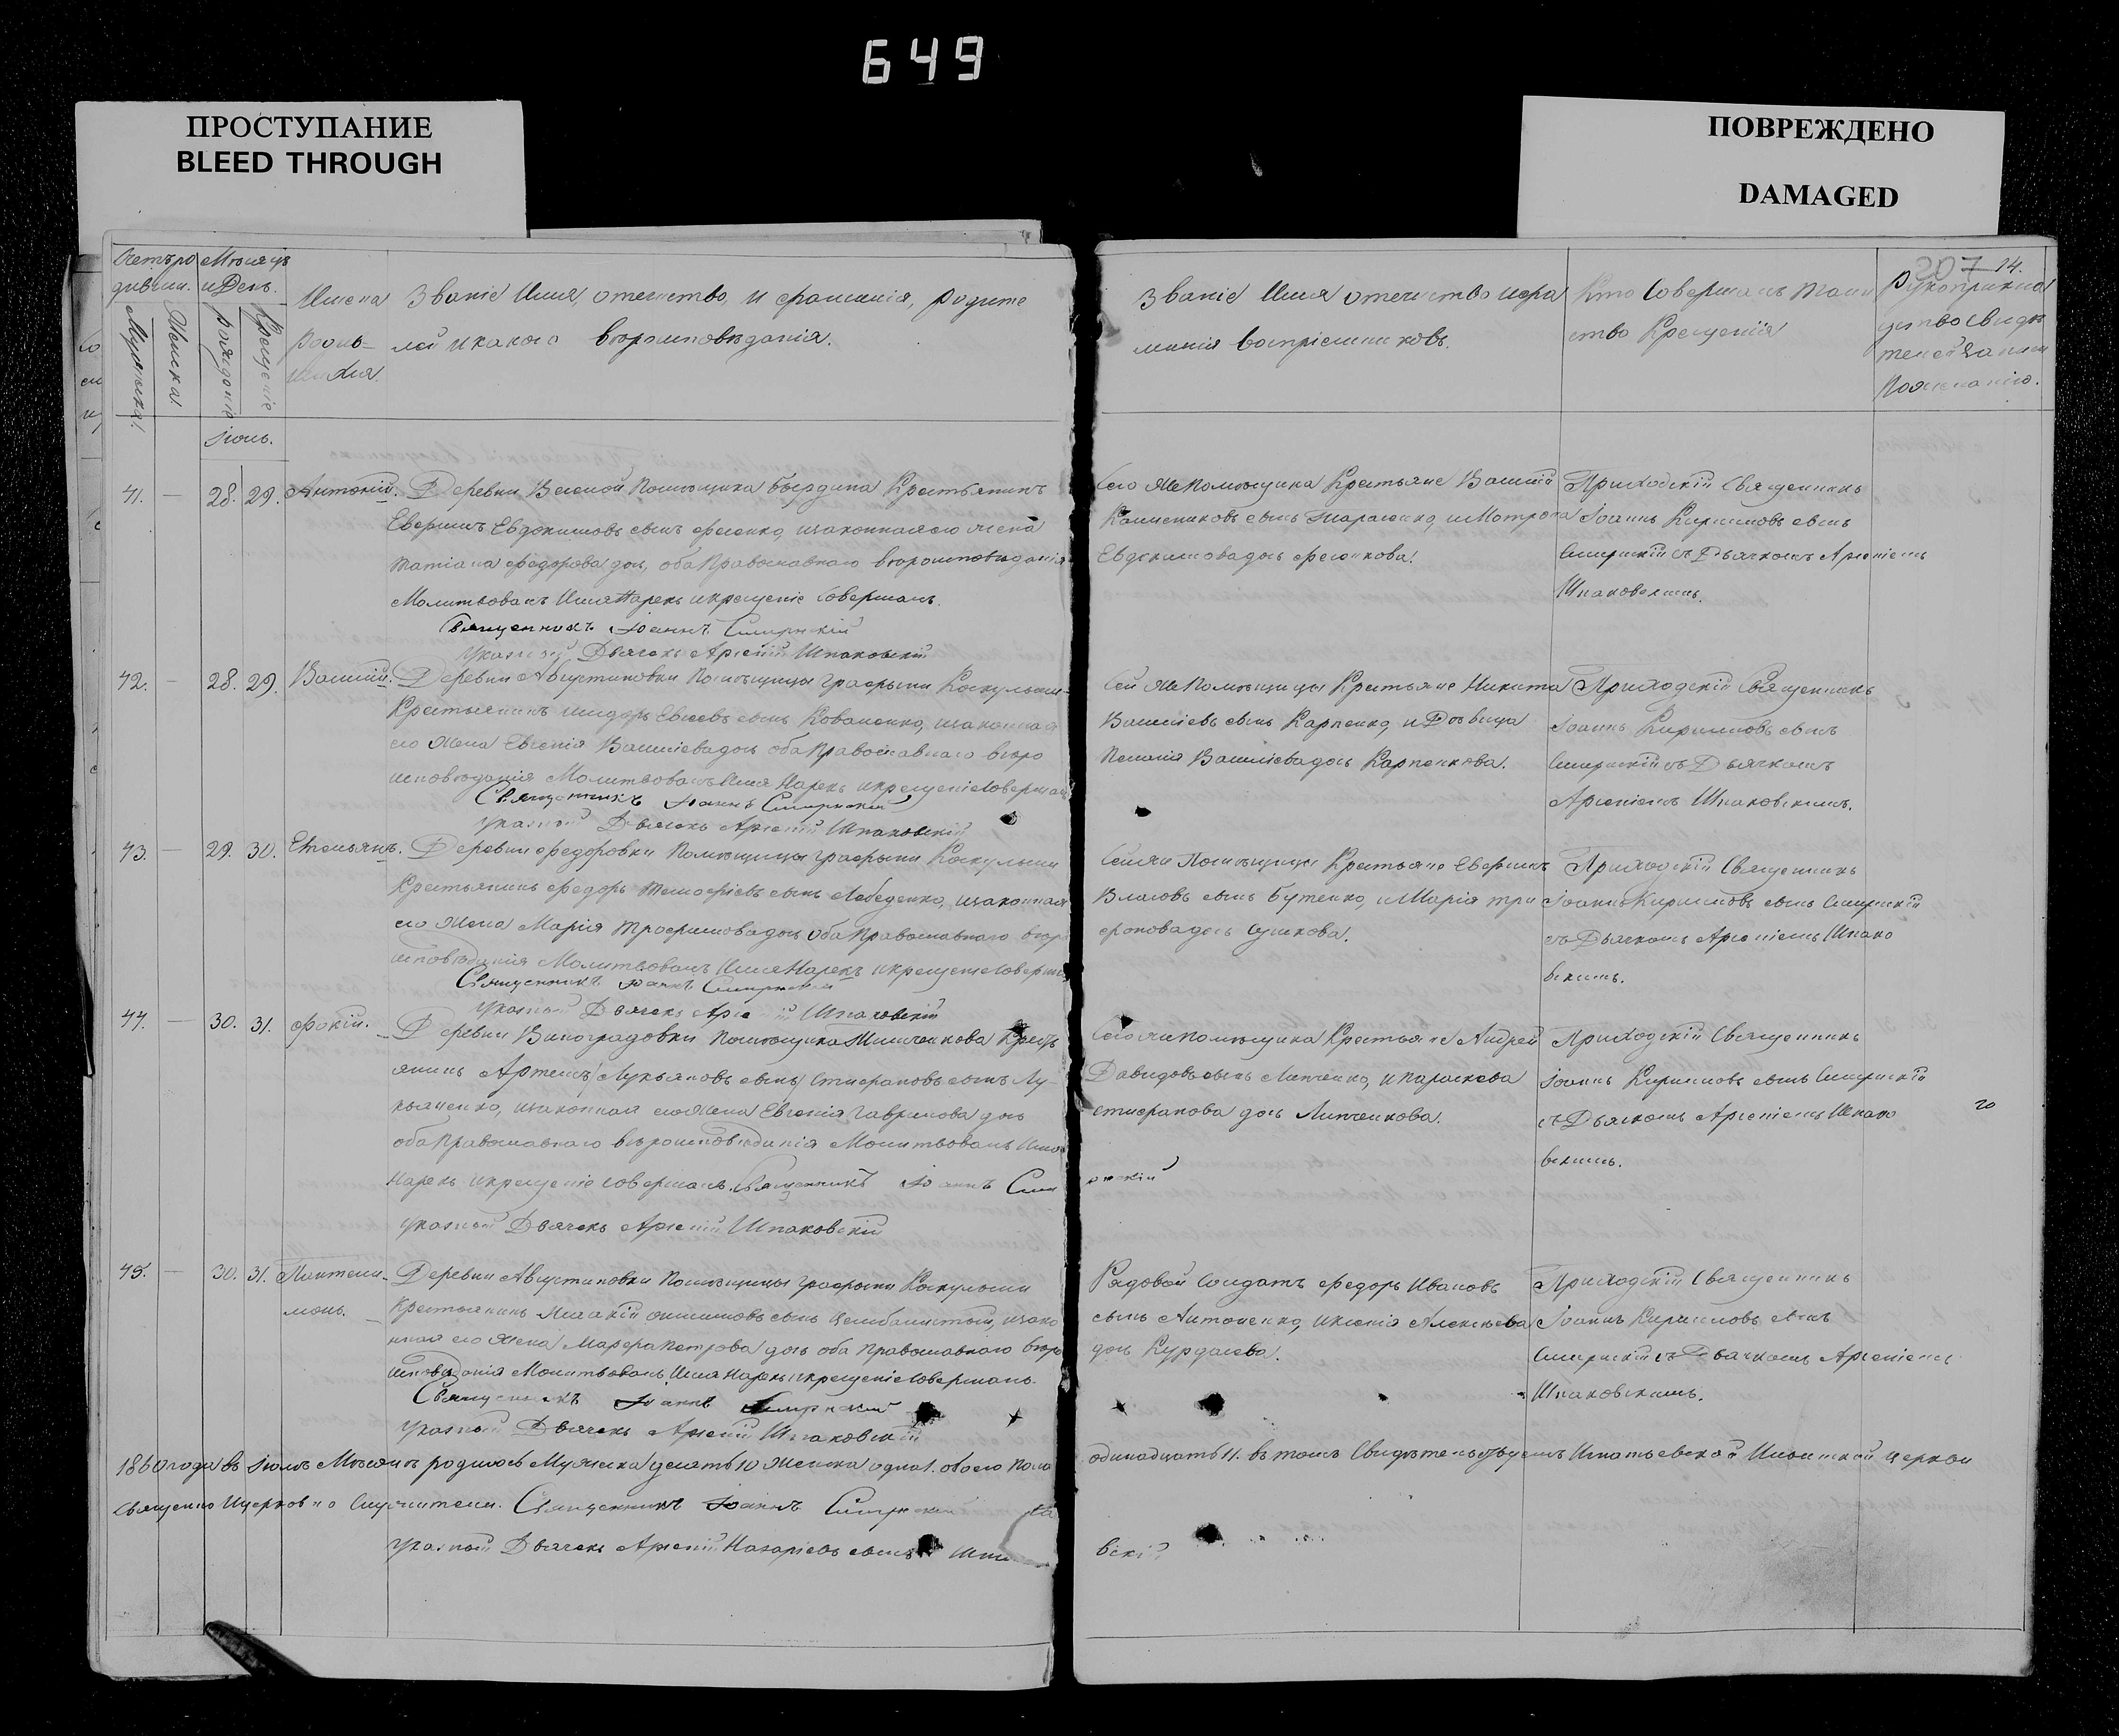 649
ПРОСТУПАНИЕ
BLEED THROUGH
ПОВРЕЖДЕНО
DAMAGED
Счетъ ро
дивши.
Мужеска.
Женска.
Мѣсяцъ
и День.
рожденіе
Крещеніе
Имена
родив-
шихся.
Званіе Имя, отечество, и фамилія, родите
лей и какого вѣроисповѣданія.
207 14.
Званіе Имя отечество и фа
милія воспріемниковъ.
Кто Совершалъ таин
ство Крещенія
Рукоприклад
ство свидѣ
телей записи
По желанію.
Іюль.
41. — 28. 29. Антоній.
Деревни Веселой Помѣщика Крестьянинъ
Евдокимовъ сынъ Фесенко, и законная его жена
татіана федорова дочь, оба Православнаго вѣроисповѣданія
Молитвовалъ Имя Нарекъ и крещеніе Совершалъ.
Священникъ Іоаннъ Смирнскій
Указный Дьячекъ Арсеній Шпаковскій
Сего же Помѣщика Крестьяне Василій
сынъ Тарасенко, и Матрона
Евдокимова дочь Фесенкова.
Приходскій Священникъ
Іоаннъ Кирилловъ сынъ
Смирнскій съ Дьячкомъ Арсеніемъ
Шпаковскимъ.
42. — 28. 29. Василій.
Деревни Августиновки Помѣщицы графини
Крестьянинъ сынъ Коваленко, и законная
его Жена Евгенія Василіева дочь оба Православнаго вѣро
исповѣданія Молитвовалъ Имя Нарекъ и крещеніе Совершалъ
Священникъ Іоаннъ Смирнскій
Указный Дьячекъ Арсеній Шпаковскій
Сей же Помѣщицы Крестьяне Никита
Василіевъ сынъ Карпенко, и Дѣвица
Василіева дочь Карпенкова.
Приходскій Священникъ
Іоаннъ Кирилловъ сынъ
Смирнскій съ Дьячкомъ
Арсеніемъ Шпаковскимъ.
43. — 29. 30. Емельянъ.
Деревни федоровки Помѣщицы графини
Крестьянинъ федоръ сынъ Лебеденко, и законная
его Жена Марія Трофимова дочь оба Православнаго вѣро
исповѣданія Молитвовалъ Имя Нарекъ и крещеніе Совершалъ
Священникъ Іоаннъ Смирнскій
Указный Дьячекъ Арсеній Шпаковскій
Сей же Помѣщицы Крестьяне
Власовъ сынъ Бутенко, и Марія три
фонова дочь
Приходскій Священникъ
Іоаннъ Кирилловъ сынъ Смирнскій
съ Дьячкомъ Арсеніемъ Шпако
вскимъ.
44. — 30. 31. Фокій.
Деревни Виноградовки Помѣщика Крест
янинъ Артемъ (Лукьяновъ сынъ) Стефановъ сынъ Лу-
кьяненко, и законная его Жена Евгенія Гаврилова дочь
оба Православнаго вѣроисповѣданія Молитвовалъ Имя
Нарекъ и крещеніе совершалъ. Священникъ Іоаннъ Сми
рнскій
Указный Дьячекъ Арсеній Шпаковскій
Сего же Помѣщика Крестьяне Андрей
Давидовъ сынъ и параскева
стефанова дочь
Приходскій Священникъ
Іоаннъ Кирилловъ сынъ Смирнскій
съ Дьячкомъ Арсеніемъ Шпако
вскимъ.
20
45. — 30. 31. Пантели-
монъ.
Деревни Августиновки Помѣщицы графини
Крестьянинъ сынъ и зако
нная его жена Марфа Петрова дочь оба Православнаго вѣро
исповѣданія Молитвовалъ Имя Нарекъ и крещеніе Совершалъ.
Священникъ Іоаннъ Смирнскій
Указный Дьячекъ Арсеній Шпаковскій
Рядовой Солдатъ федоръ Ивановъ
сынъ Антоненко, и Ксенія Алексѣева
дочь
Приходскій Священникъ
Іоаннъ Кирилловъ сынъ
Смирнскій съ Дьячкомъ Арсеніемъ
Шпаковскимъ.
1860 года въ Іюлѣ Мѣсяцѣ родилось Мужеска десять 10 Женска одна 1. обоего пола одинадцать 11. въ томъ Свидѣтельствуемъ церкви
Священно Церковно Служители. Священникъ Іоаннъ Смирнскій
Указный Дьячекъ Арсеній Назаріевъ сынъ
вскій